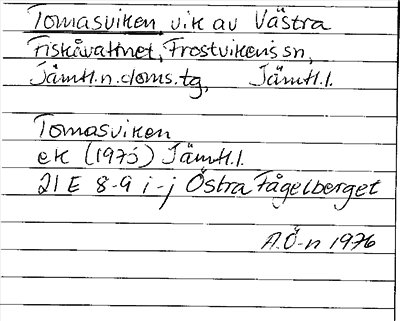 Tomasviken vik av Västra
Fiskåvattnet, Frostvikens sn,
Jämtl.n.doms.tg, Jämtl.l.
Tomasviken
ek (1975) Jämtl.l.
21 E 8-9 i-j Östra Fågelberget
A.Ö-n 1976